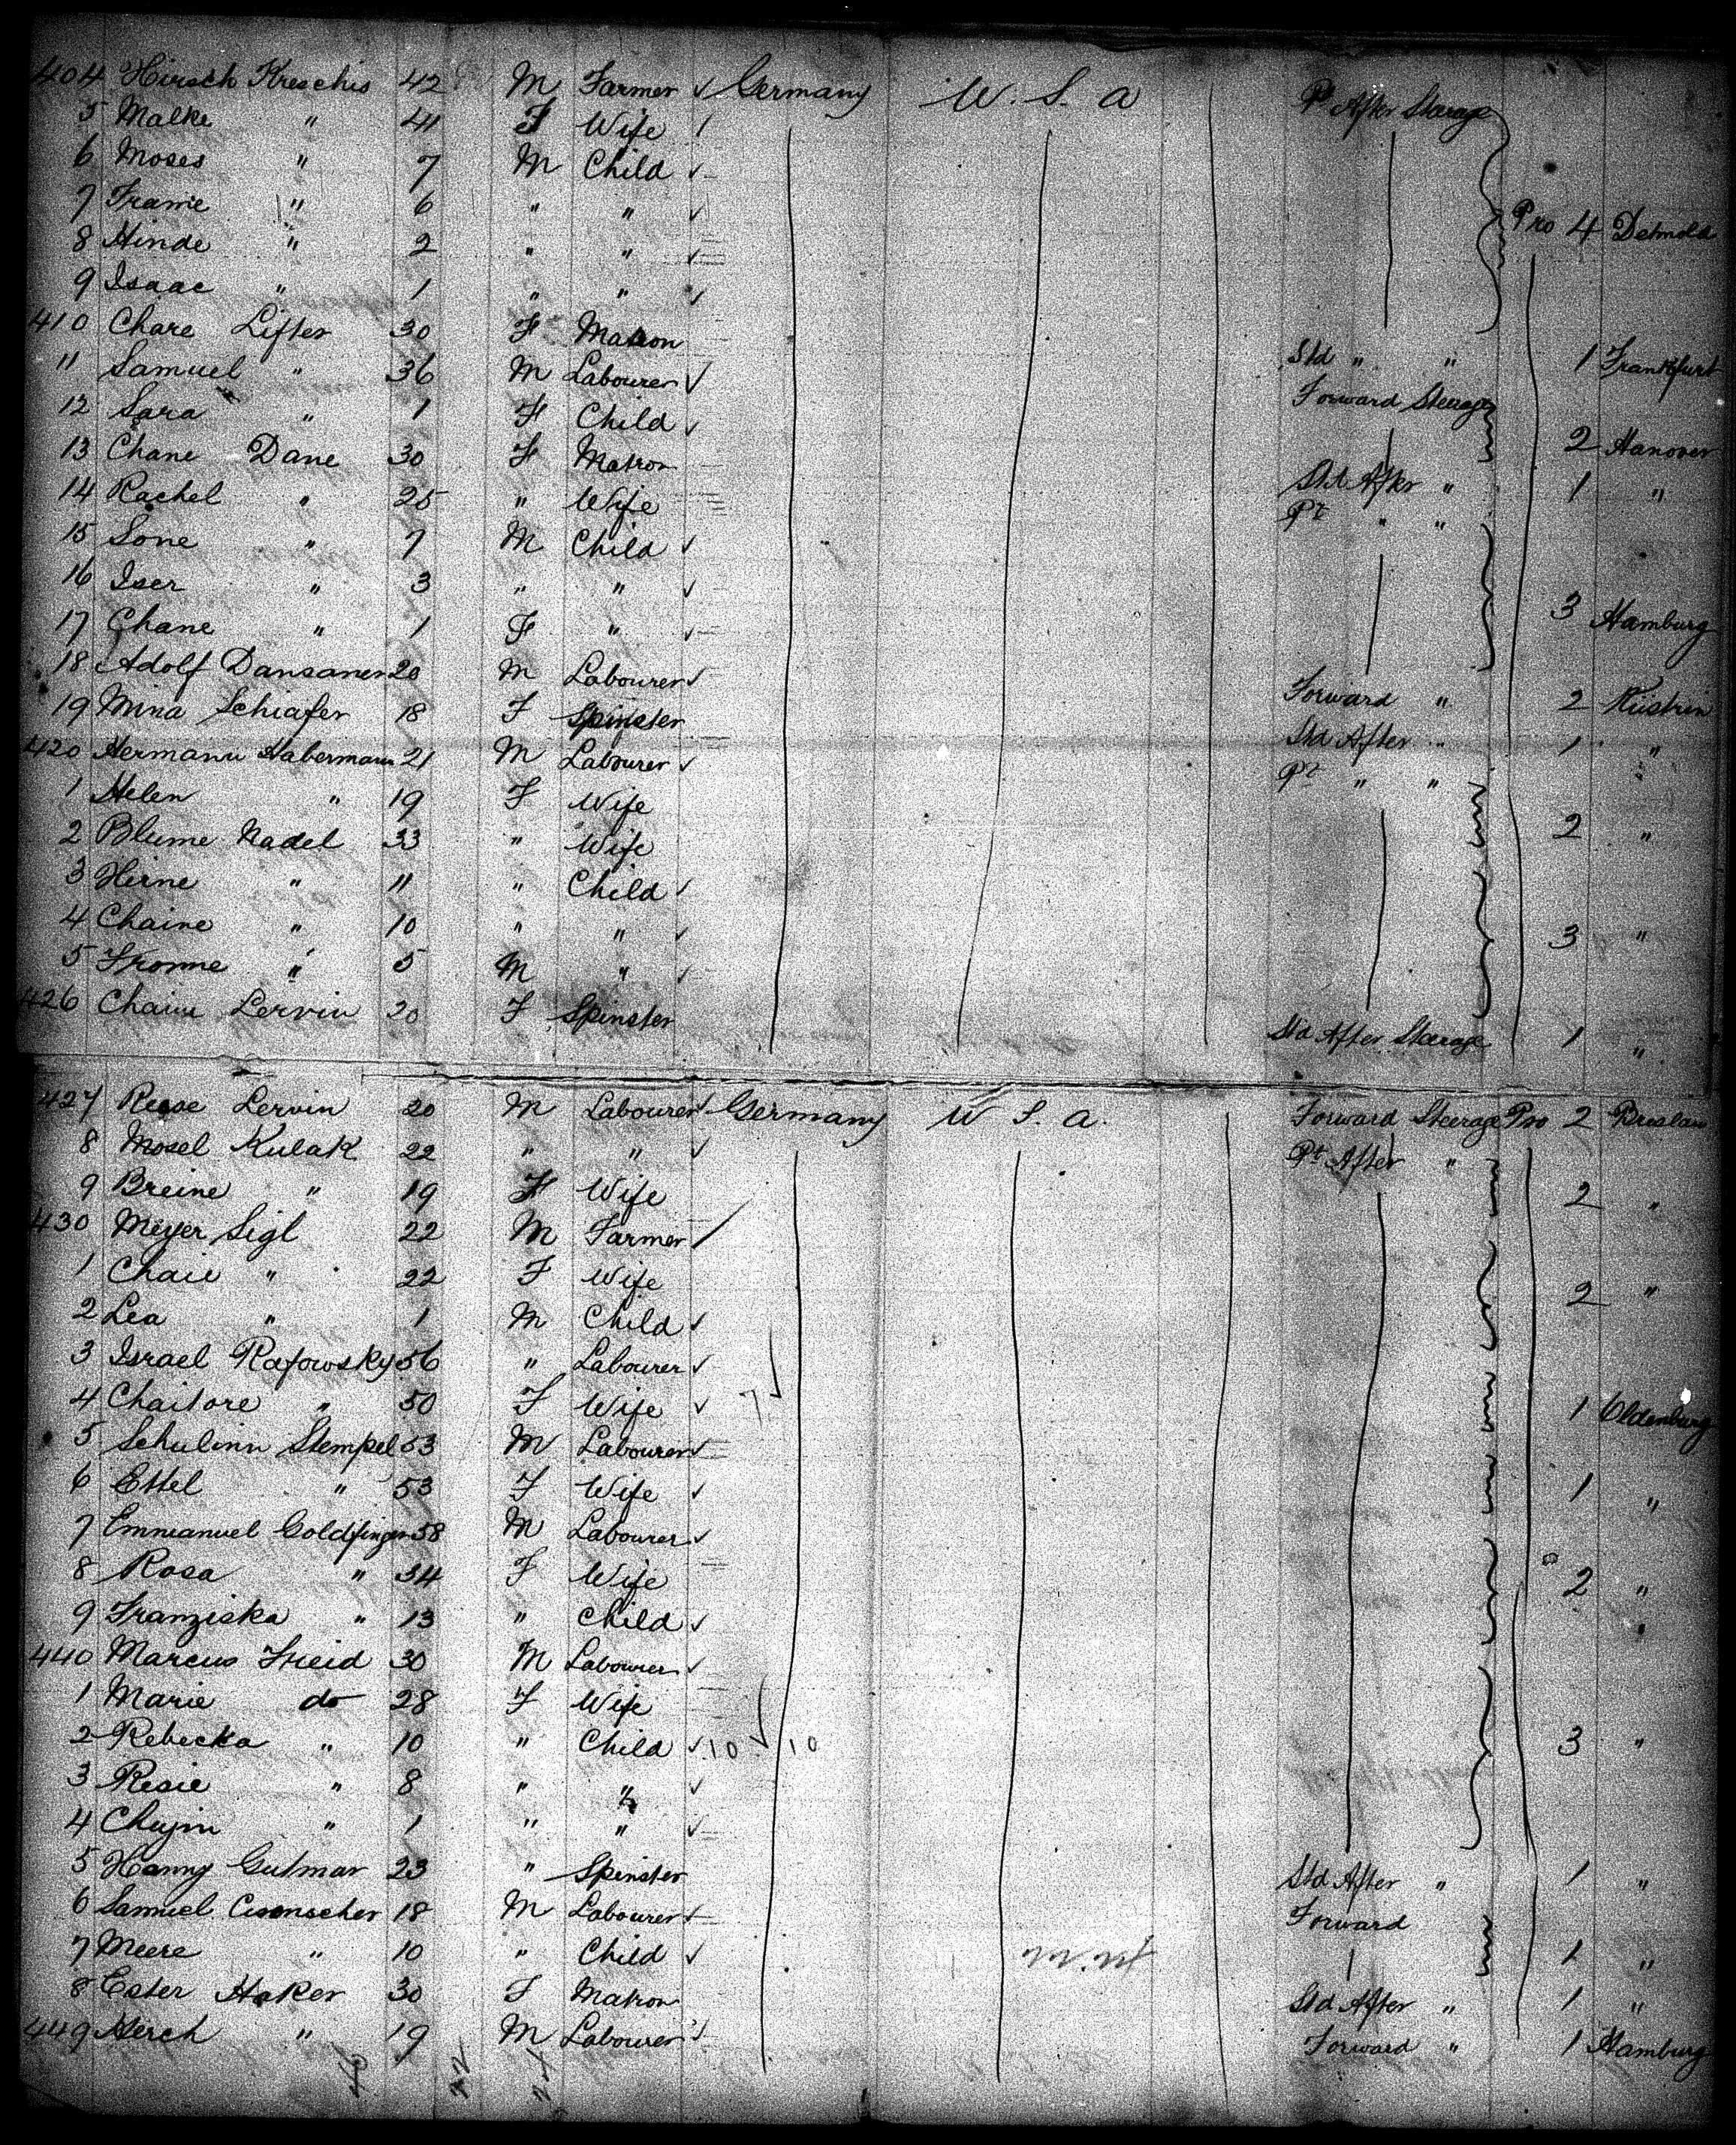 404 Hirsch Kreschis 42 M Farmer Germany U. S. A Pt After Steerage
5 Malke " 41 F Wife
6 Moses " 7 M Child
7 Franie " 6 " "
8 Hinde " 2 " " Pro 4 Detmold
9 Isaac " 1 " "
410 Chare Lifter 30 F Matron Std " " 1 Frankfurt
11 Samuel " 36 M Labourer Forward Steerage
12 Sara " 1 F Child 2 Hanover
13 Chane Dane 30 F Matron Std After " 1 "
14 Rachel " 25 " Wife Pt " "
15 Sone " 7 M Child
16 Iser " 3 " "
17 Chane " 1 F " 3 Hamburg
18 Adolf Dansaner 20 M Labourer Forward " 2 Küstrin
19 Mina Schiafer 18 F Spinster Std After " 1 "
420 Hermann Habermann 21 M Labourer Pt " "
1 Helen " 19 F Wife 2 "
2 Blume Nadel 33 " Wife
3 Hirne " 11 " Child
4 Chaine " 10 " " 3 "
5 Fromme " 5 M "
426 Chaine Lervin 20 F Spinster Std After Steerage 1 "
427 Reese Lervin 20 M Labourer Germany U S. A. Forward Steerage Pro 2 Breslau
8 Mosel Kulak 22 " " Pt After "
9 Breine " 19 F Wife 2 "
430 Meyer Sigl 22 M Farmer
1 Chaie " 22 F Wife 2 "
2 Lea " 1 M Child
3 Israel Ratowsky 56 " Labourer
4 Chaitore " 50 F Wife 1 Oldenburg
5 Schulinn Stempel 53 M Labourer
6 Ettel " 53 F Wife 1 "
7 Emmanuel Goldfinger 58 M Labourer
8 Rosa " 34 F Wife 2 "
9 Franziska " 13 " Child
440 Marcus Freid 30 M Labourer
1 Marie do 28 F Wife
2 Rebecka " 10 " Child 10 10 3 "
3 Resie " 8 " "
4 Chajim " 1 " "
5 Hanny Gutmar 23 " Spinster Std After " 1 "
6 Samuel Cisenscher 18 M Labourer Forward
7 Meere " 10 " Child 1 "
8 Ester Haker 30 F Matron Std After " 1 "
449 Herch " 19 M Labourer Forward " 1 Hamburg